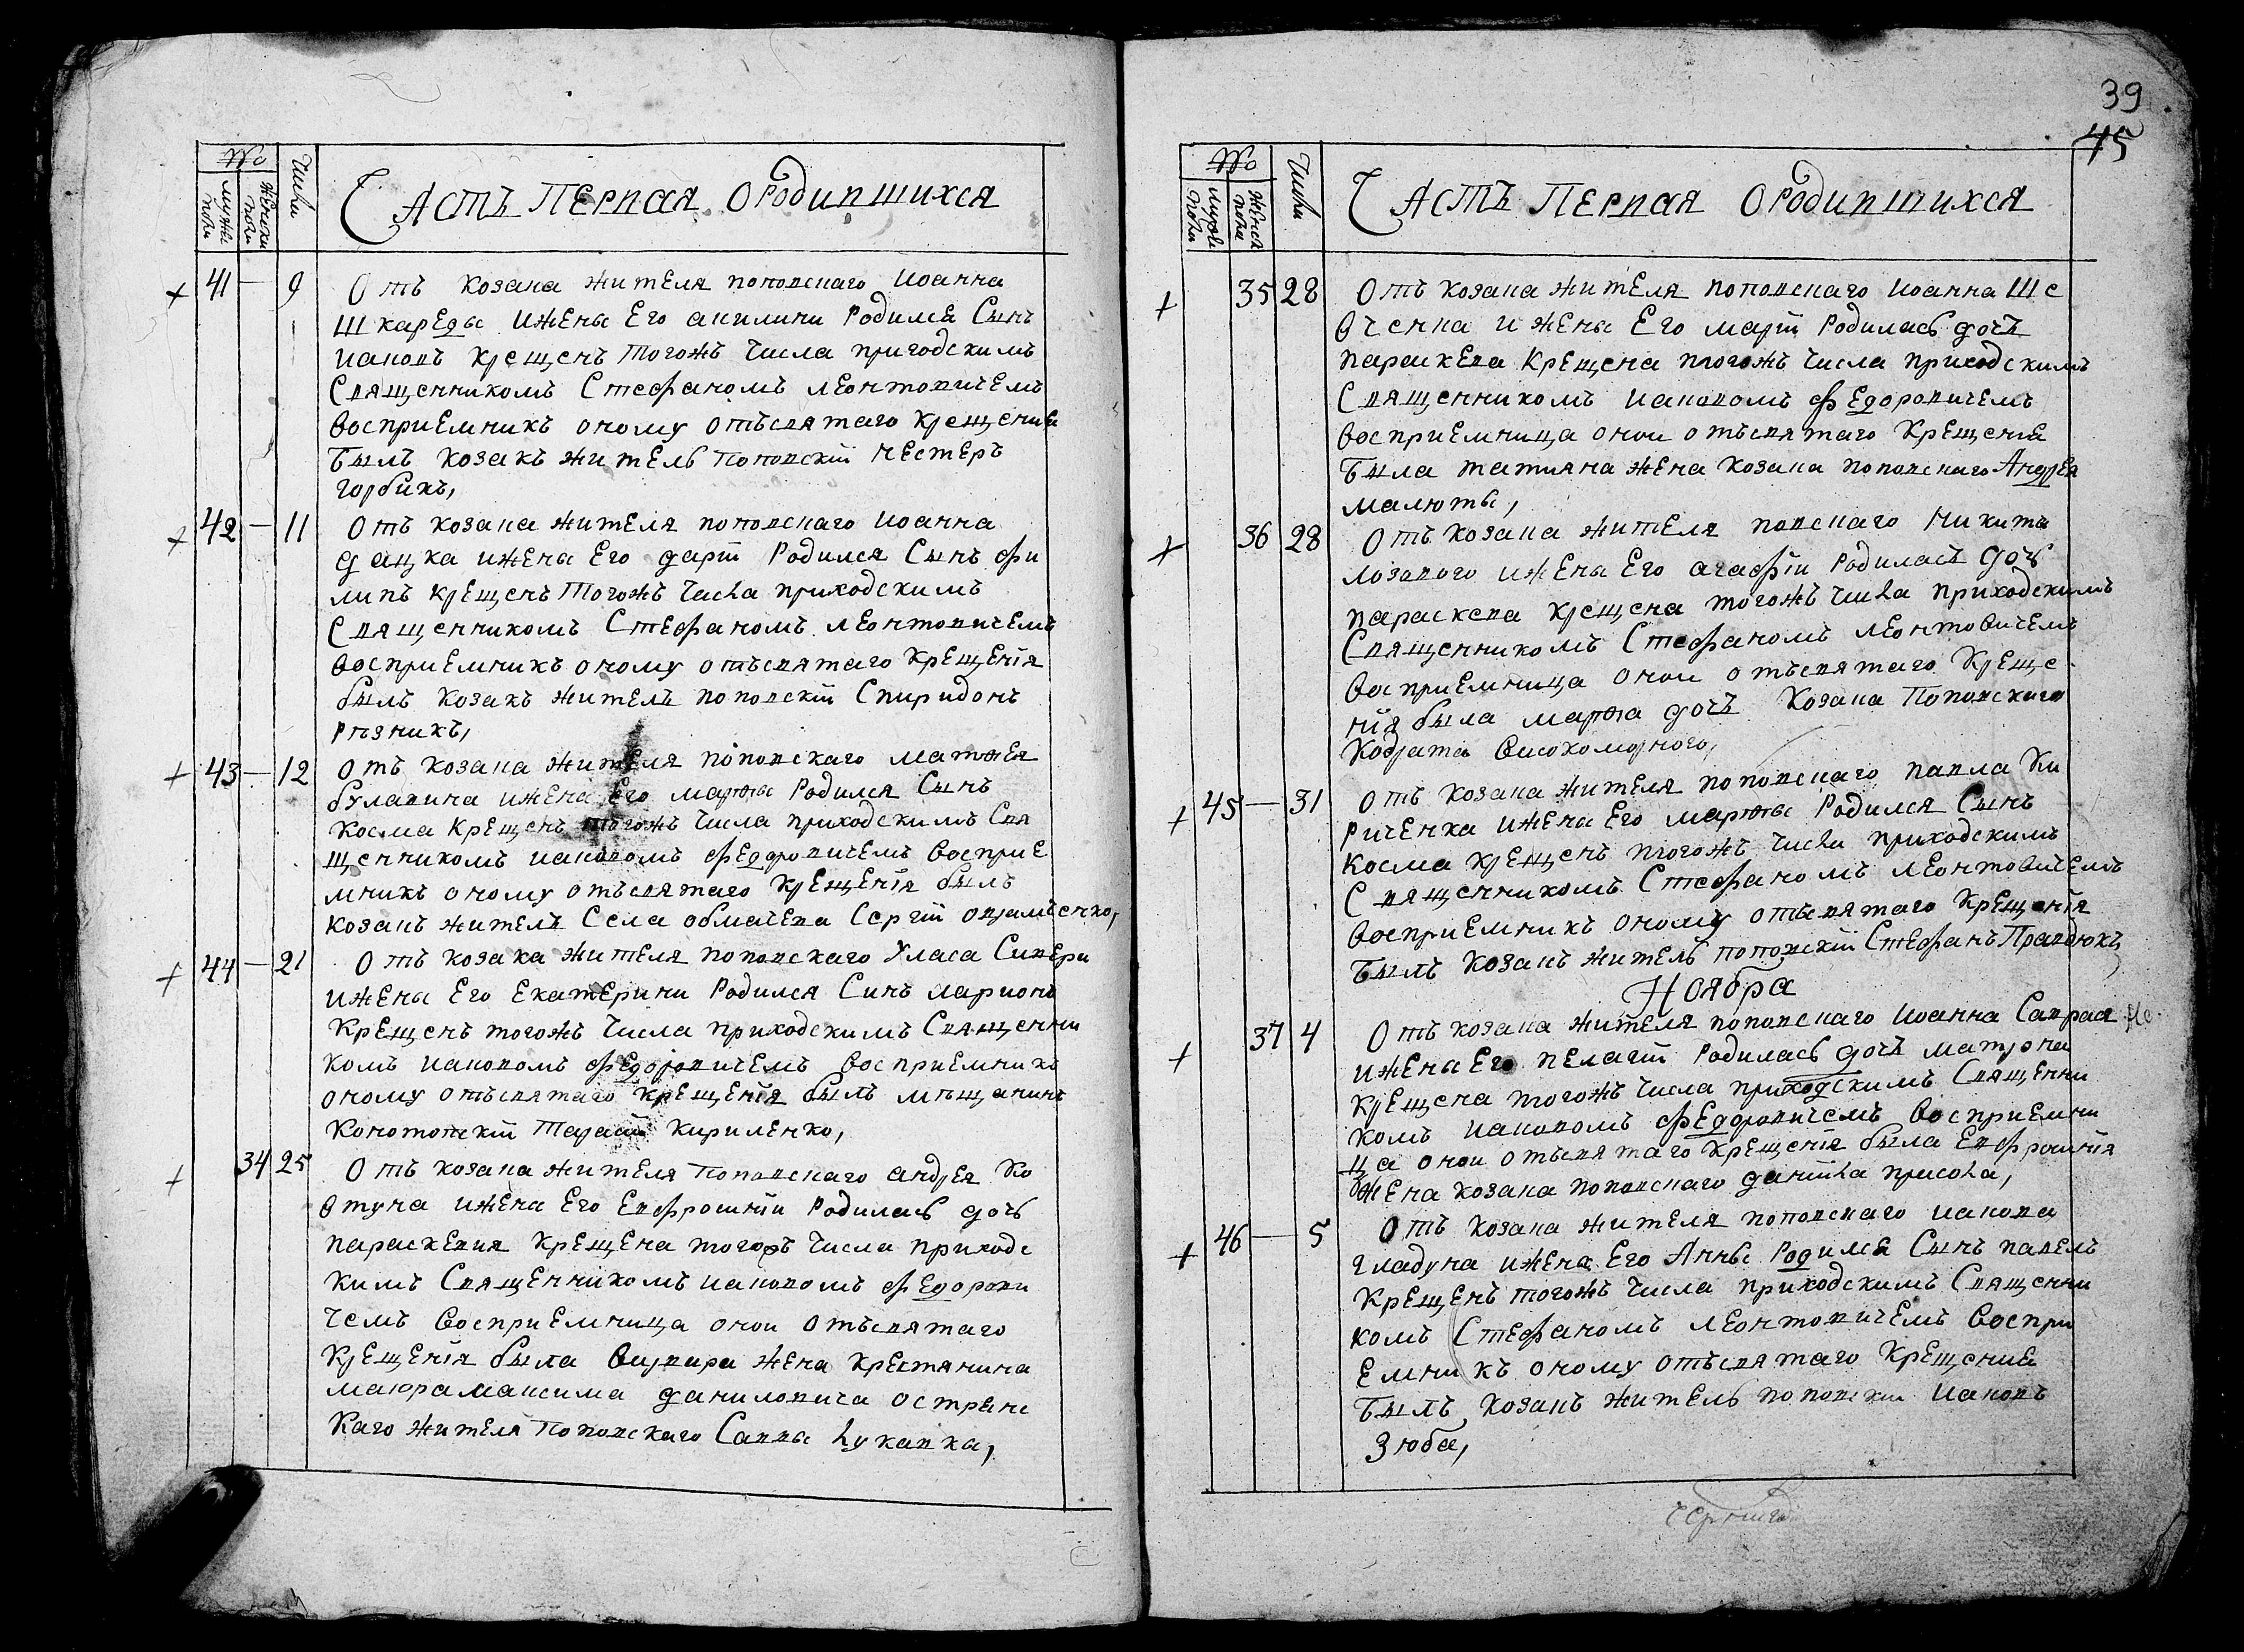 №
мужес
полу
женски
полу
Число
Часть первая о родившихся
41 — 9 Отъ козака жителя поповскаго иоанна
шкареды ижены Его акилини Родился Сынъ
иаковъ крещенъ тогожъ числа пригодскимъ
Священникомъ Стефаномъ леонтовичемъ
восприемникъ оному отъсвятаго крещения
былъ козакъ житель поповскій нестеръ
горбикъ,
42 — 11 Отъ козака жителя поповскаго иоанна
дацка ижены Его даріи Родился Сынъ фи
липъ крещенъ тогожъ числа приходскимъ
Священникомъ Стефаномъ леонтовичемъ
восприемникъ оному отъсвятаго крещенія
былъ козакъ житель поповскій Спиридонъ
рѣзникъ,
43 — 12 Отъ козака жителя поповскаго матѳея
булавина ижены Его марѳы Родился Сынъ
косма крещенъ тогожъ числа приходскимъ Свя
щенникомъ иаковомъ федоровичемъ восприе
мникъ оному отъсвятаго крещенія былъ
козакъ житель Села обмачева Сергій
44 — 21 Отъ козака жителя поповскаго Уласа Сивери
ижены Его Екатерини Родился Синъ ларионъ
крещенъ тогожъ числа приходскимъ Священни
комъ иаковомъ федоровичемъ восприемникъ
оному отъсвятаго крещенія былъ мѣщанинъ
конотопскій Тарасій кириленко,
34 25 Отъ козака жителя поповскаго андрея ко
втуна ижены Его Евфросиніи Родилась дочь
параскевия крещена тогожъ числа приходс
кимъ Священникомъ иаковомъ федорови
чемъ восприемница онои отъсвятаго
крещенія была варвара жена крестянина
маюра максима даниловича острянс
каго жителя поповскаго Саввы лукавка,
39
45
№
мужес
полу
женск
полу
Число
Часть первая о родившихся
35 28 Отъ козака жителя поповскаго иоанна Ше
вченка и жены Его маріи Родилась дочь
параскева крещена тогожъ числа приходскимъ
Священникомъ иаковомъ федоровичемъ
восприемница онои отъсвятаго крещения
была татияна жена козака поповскаго Андрея
малюты,
36 28 Отъ козака жителя повскаго никиты
лозового ижены Его агафіи родилась дочь
параскева крещена тогожъ числа приходскимъ
Священникомъ Стефаномъ леонтовичемъ
восприемница онои отъсвятаго креще
нія была марѳа дочь козака Поповскаго
Кодрата високоморного,
45 — 31 Отъ козака жителя поповскаго павла ки
риченка ижены Его марѳы Родился Сынъ
косма крещенъ тогожъ числа приходскимъ
Священникомъ Стефаномъ леонтовичемъ
восприемникъ оному отъсвятаго крещенія
былъ козакъ житель поповскій Стефанъ Правдюкъ,
Ноября
37 4 Отъ козака жителя поповскаго иоанна Саврая
ижены Его пелагіи Родилась дочь матрона
крещена тогожъ числа приходскимъ Священни
комъ иаковомъ федоровичемъ восприемни
ца онои отъсвятаго крещенія была Евфросинія
жена козака поповскаго даніила присола,
46 — 5 Отъ козака жителя поповскаго иакова
гладуна ижены Его Анны Родился Сынъ павелъ
крещенъ тогожъ числа приходскимъ Священни
комъ Стефаномъ леонтовичемъ воспри
емникъ оному отъсвятаго крещения
былъ козакъ житель поповски иаковъ
Зюба,